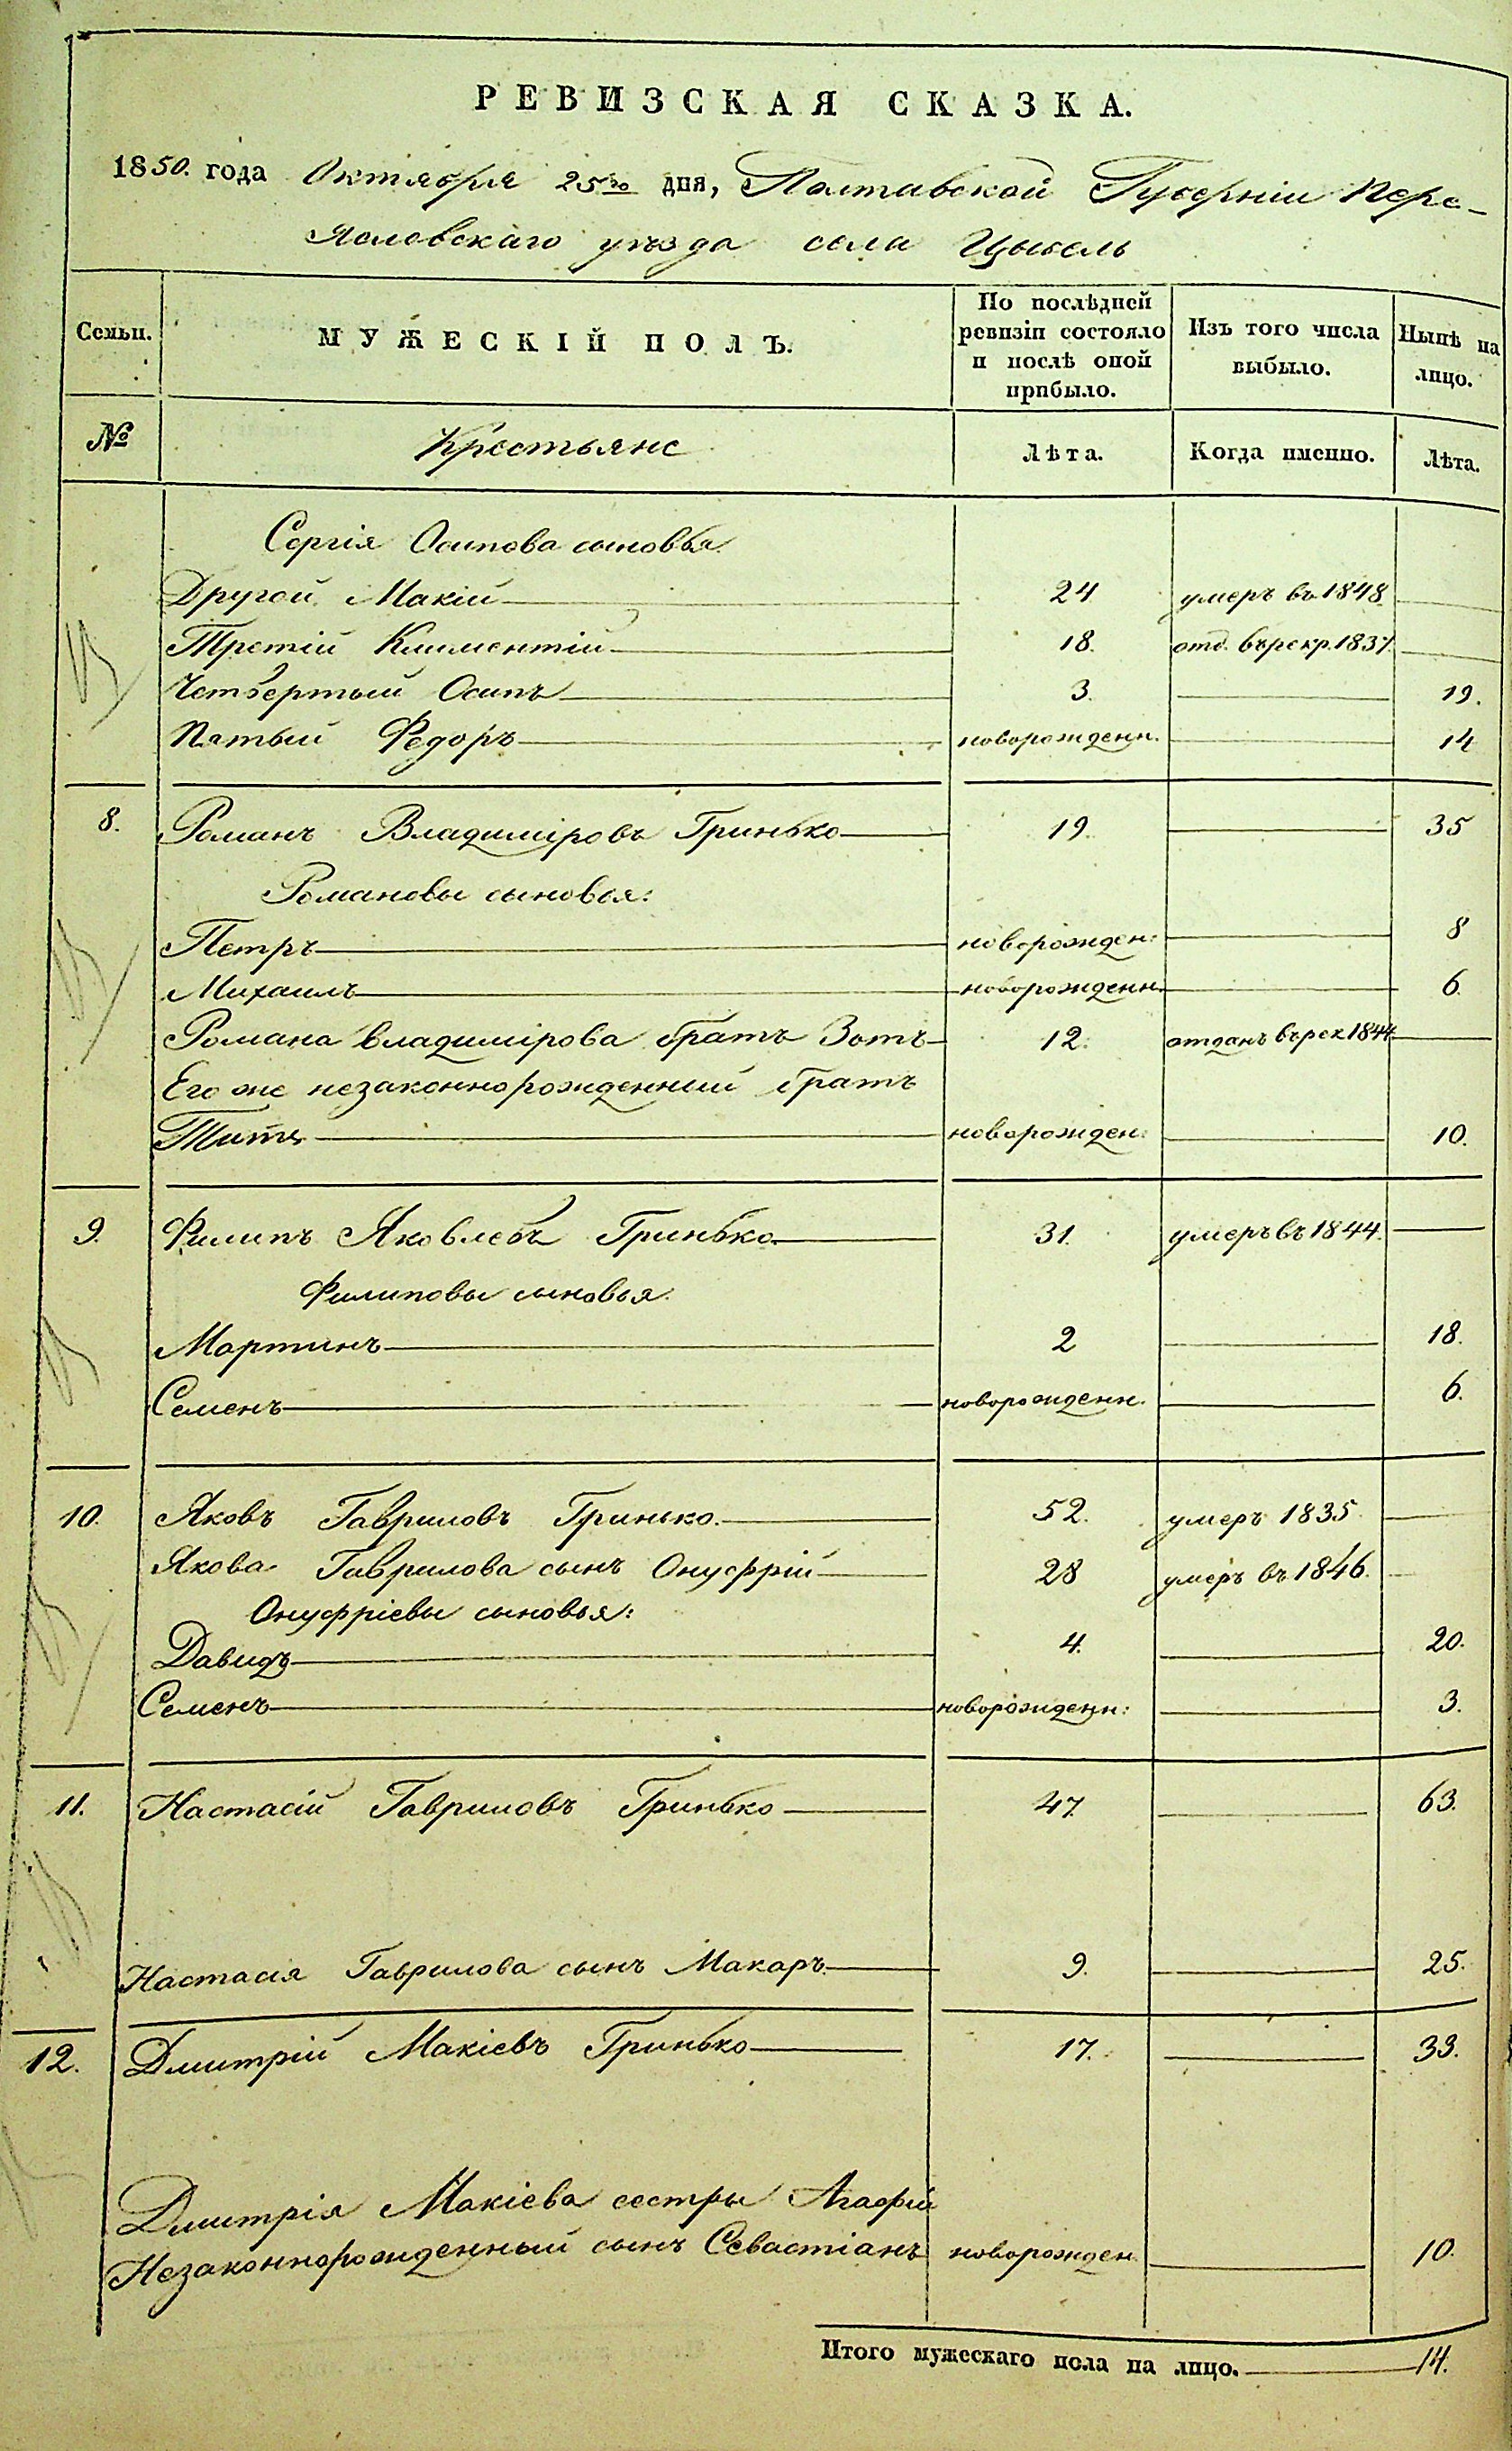 РЕВИЗСКАЯ СКАЗКА.
1850. года Октября 25го дня, Полтавской Губерніи Пере-
яславскаго уѣзда села Цыбель
Семьи. МУЖЕСКІЙ ПОЛЪ. По послѣдней ревизіи состояло и послѣ оной прибыло. Изъ того числа выбыло. Нынѣ на лицо.
№ Крестьяне Лѣта. Когда именно. Лѣта.
Сергія Осипова сыновья
Другой Макій 24 умеръ въ 1848
Третій Климентій 18. отд. въ рекр. 1837.
Четвертый Осипъ 3. 19.
Пятый Федоръ новорожденн. 14
8. Романъ Владиміровъ Гринько 19. 35
Романовы сыновья:
Петръ новорожден: 8
Михаилъ новорожденн. 6.
Романа Владимірова братъ Зотъ 12. отданъ въ рек 1844
Его же незаконнорожденный братъ
Титъ новорожден: 10.
9. Филипъ Яковлевъ Гринько 31. умеръ въ 1844.
Филиповы сыновья.
Мартинъ 2 18.
Семенъ новорожденн. 6.
10. Яковъ Гавриловъ Гринько. 52. умеръ 1835.
Якова Гаврилова сынъ Онуфрій 28 умеръ въ 1846.
Онуфріевы сыновья:
Давидъ 4. 20.
Семенъ новорожденн: 3.
11. Настасій Гавриловъ Гринько 47. 63.
Настасія Гаврилова сынъ Макаръ 9. 25.
12. Дмитрій Макіевъ Гринько 17. 33.
Дмитрія Макіева сестры Агафіи
Незаконнорожденный сынъ Севастіанъ новорожден. 10.
Итого мужескаго пола на лицо. 14.